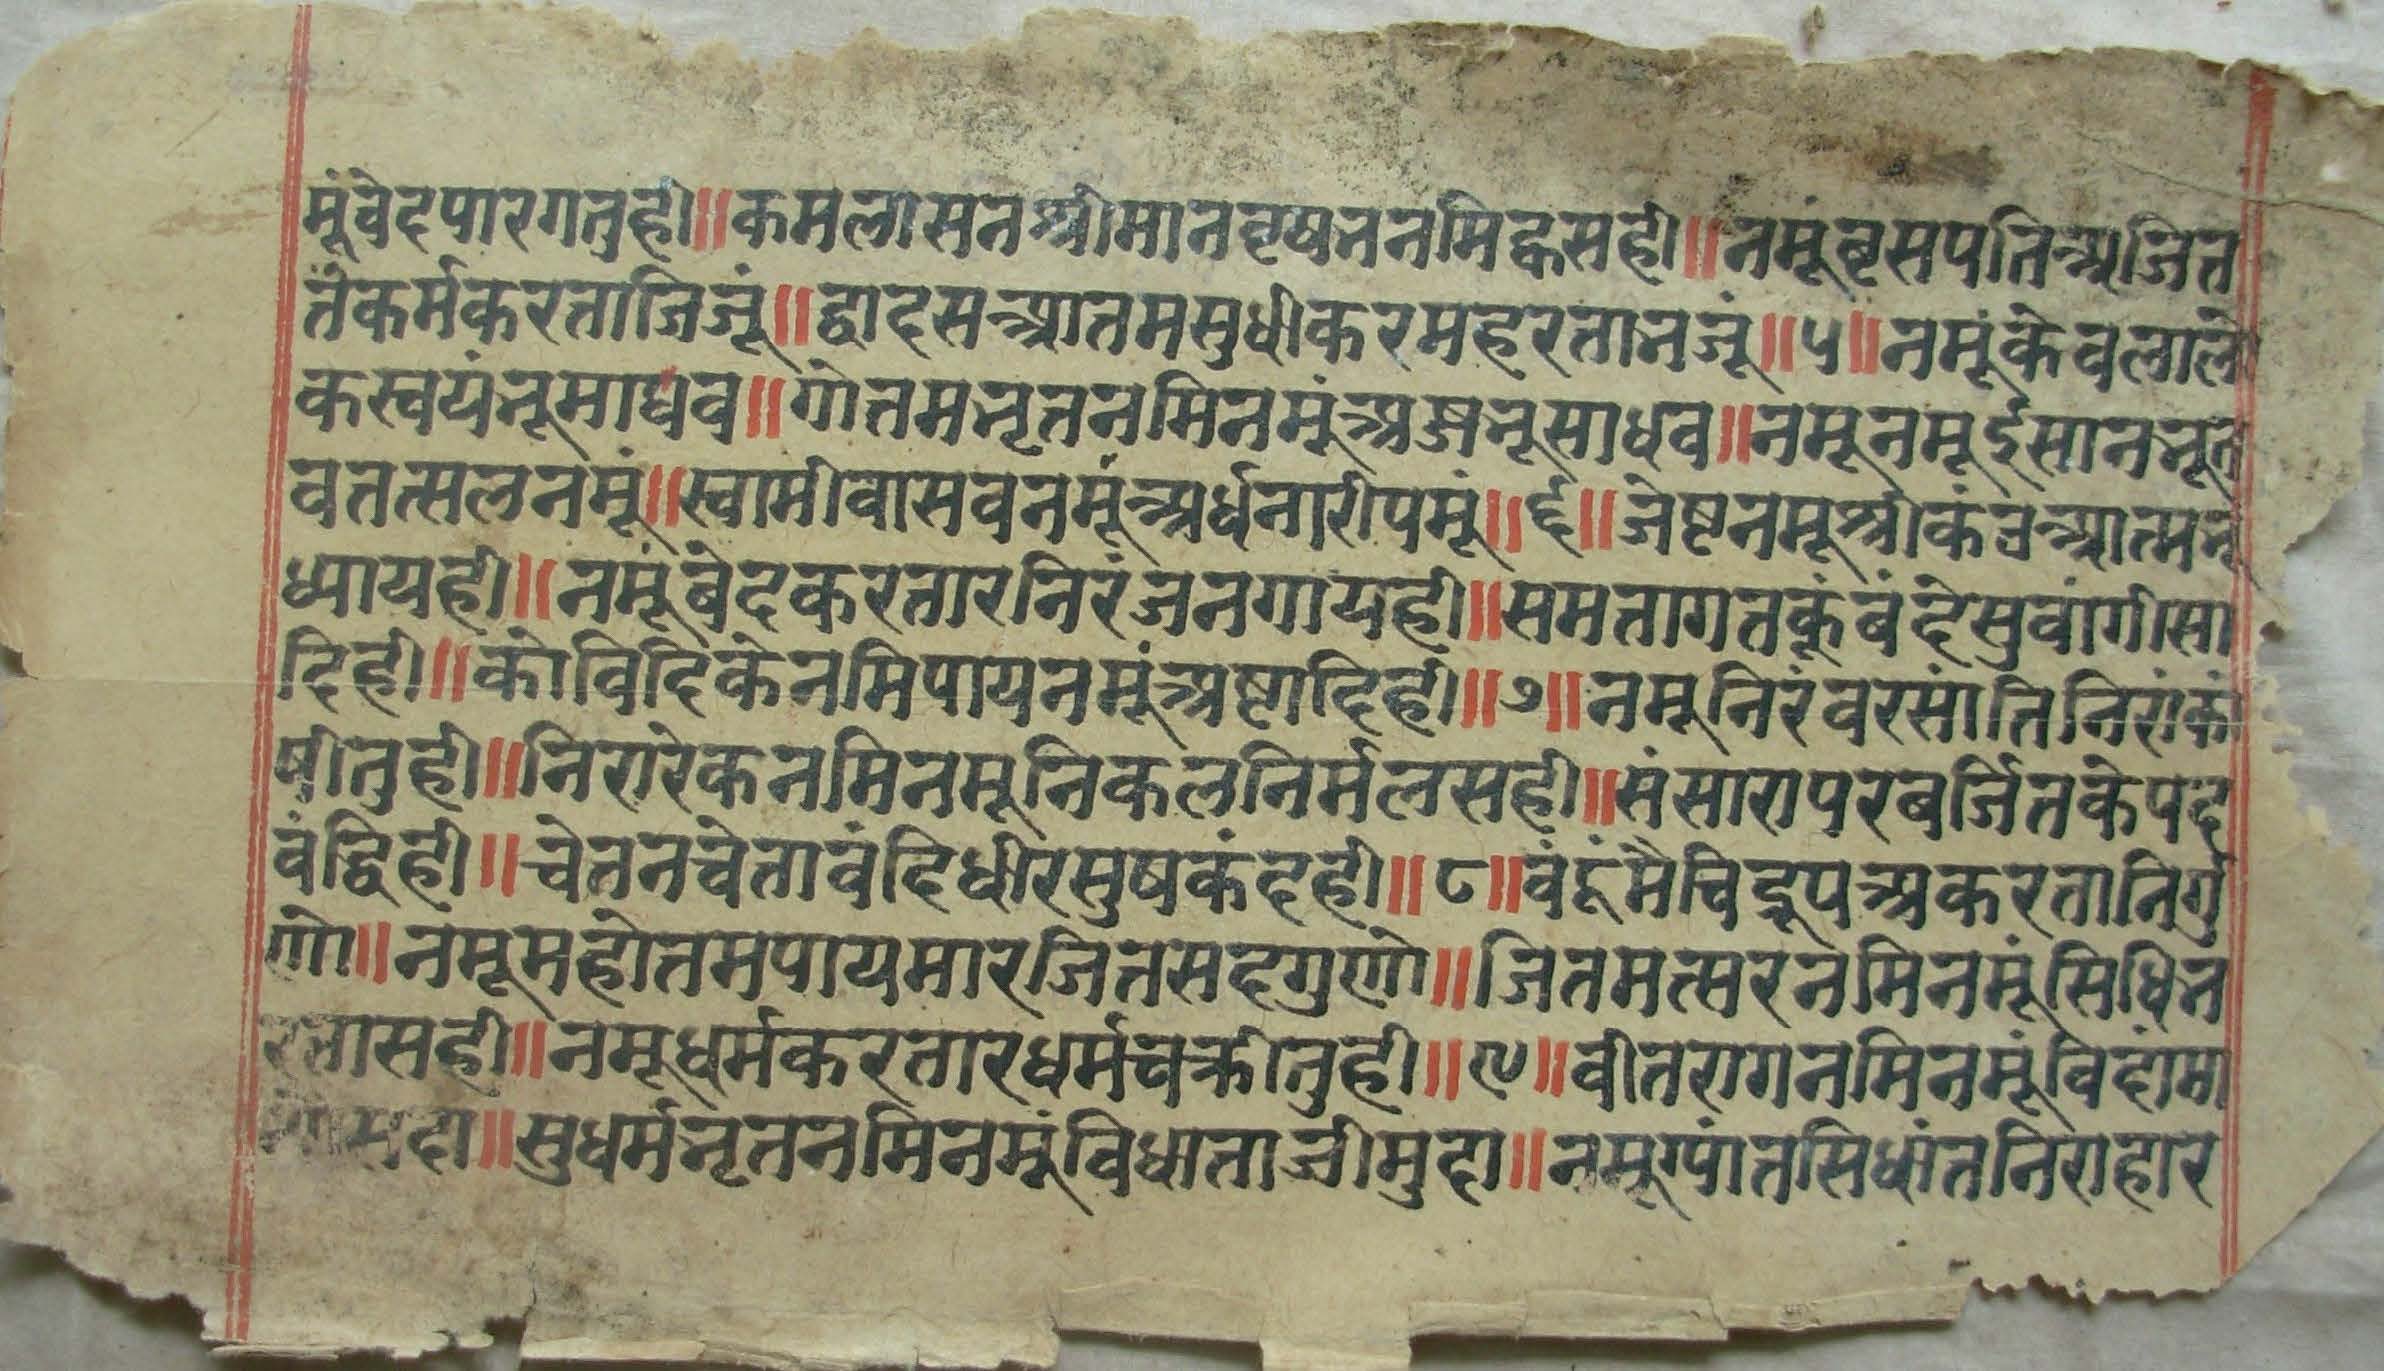 मूंवेदपारगतुही॥कमलासनश्रीमानवृषभनमिहूसही॥नमूंबृसपतिअजित
तेंकर्मकरताजिजूं॥द्वादसआतमसुधीकरमहरताभजूं॥५॥नमूंकेवलाले
कस्वयंभूमाघव॥गोतमभृतनमिनमूंअब्जभूसाधव॥नमूनमूईसानभूत
वतत्सलनमूं॥स्वामीवासवनमूंअर्धनारीपमूं॥६॥जेष्टनमूश्रीकंठआत्मभू
ध्यायही॥नमूंबेदकरतारनिरंजनगायही॥समतागतकूंबंदेसुवांगीसा
दिही॥कोविदिकेनमिपायनमूंअष्टादिही॥७॥नमूनिरंवरसांतिनिरांकां
षीतुही॥निरारेकनमिनमूनिकलनिर्मलसही॥संसारापरबर्जितकेपद
वंद्विही॥चेतनचेतावंदिधीरसुषकंदही॥८॥वंदूंमैचिद्रूपअकरतानिर्गु
णो॥नमूमहोतमपायमारजितसदगुणो॥जितमत्सरनमिनमूंसिधिभ
रतासही॥नमूधर्मकरतारधर्मचक्रीतुही॥९॥वीतरागनमिनमूंविदांमा
सदा॥सुधर्मभृतनमिनमूंविधाताजीमुदा॥नमूग्यांतसिधांतनिराहार